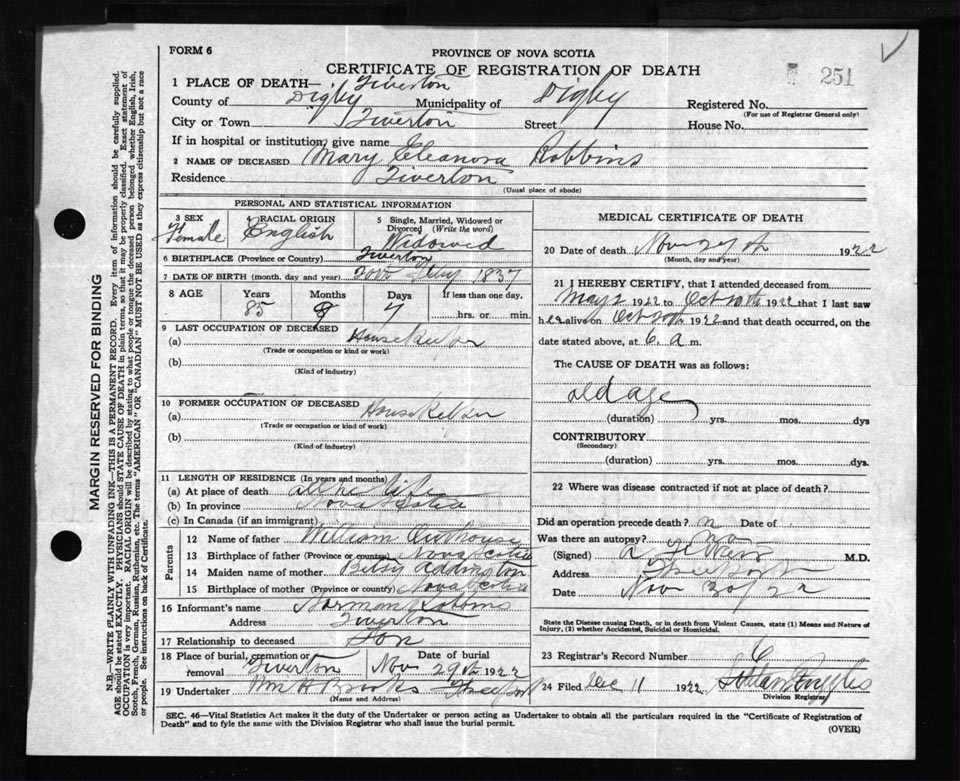 FORM 6
PROVINCE OF NOVA SCOTIA
CERTIFICATE OF REGISTRATION OF DEATH
251
1 PLACE OF DEATH— Tiverton
County of Digby Municipality of Digby Registered No.
(For use of Registrar General only)
City or Town Tiverton Street House No.
If in hospital or institution, give name
2 NAME OF DECEASED Mary Eleanora Robbins
Residence Tiverton
(Usual place of abode)
PERSONAL AND STATISTICAL INFORMATION
3 SEX Female
4 RACIAL ORIGIN English
5 Single, Married, Widowed or Divorced (Write the word) Widowed
6 BIRTHPLACE (Province or Country) Tiverton
7 DATE OF BIRTH (month, day and year) 1837
8 AGE Years 85 Months 8 Days 7 If less than one day, hrs. or min.
9 LAST OCCUPATION OF DECEASED
(a) Housekeeper
(Trade or occupation or kind or work)
(b)
(Kind of industry)
10 FORMER OCCUPATION OF DECEASED
(a) Housekeeper
(Trade or occupation or kind of work)
(b)
(Kind of industry)
11 LENGTH OF RESIDENCE (In years and months)
(a) At place of death all her life
(b) In province Nova Scotia
(c) In Canada (if an immigrant)
Parents
12 Name of father William Outhouse
13 Birthplace of father (Province or country) Nova Scotia
14 Maiden name of mother Betsy Addington
15 Birthplace of mother (Province or country) Nova Scotia
16 Informant's name Norman
Address Tiverton
17 Relationship to deceased Son
18 Place of burial, cremation or removal Tiverton Date of burial Nov 29th 1922
19 Undertaker Wm H Brooks Freeport
(Name and Address)
MEDICAL CERTIFICATE OF DEATH
20 Date of death Nov 27th 1922
(Month, day and year)
21 I HEREBY CERTIFY, that I attended deceased from
May 2 1922 to Oct 1922 that I last saw
her alive on Oct 1922 and that death occurred, on
date stated above, at 6 a m.
The CAUSE OF DEATH was as follows:
old age
(duration) yrs. mos. dys
CONTRIBUTORY
(Secondary)
(duration) yrs. mos. dys.
22 Where was disease contracted if not at place of death?
Did an operation precede death? n Date of
Was there an autopsy? no
(Signed) M.D.
Address Freeport
Date Nov 30/22
State the Disease causing Death, or in death from Violent Causes, state (1) Means and Nature of
Injury, (2) whether Accidental, Suicidal or Homicidal.
23 Registrar's Record Number 6
24 Filed Dec 11 1922 Ruggles
Division Registrar
SEC. 46—Vital Statistics Act makes it the duty of the Undertaker or person acting as Undertaker to obtain all the particulars required in the "Certificate of Registration of
Death" and to fyle the same with the Division Registrar who shall issue the burial permit.
(OVER)
MARGIN RESERVED FOR BINDING
N.B.—WRITE PLAINLY WITH UNFADING INK—THIS IS A PERMANENT RECORD. Every item of information should be carefully supplied.
AGE should be stated EXACTLY. PHYSICIANS should STATE CAUSE OF DEATH in plain terms, so that it may be properly classified. Exact statement of
OCCUPATION is very important. RACIAL ORIGIN will be described by stating to what people or tongue the deceased person belonged whether English, Irish,
Scotch, French, German, Russian, Ruthenian, etc. The terms "AMERICAN" OR "CANADIAN" MUST NOT BE USED as they express citizenship but not a race
or people. See instructions on back of Certificate.